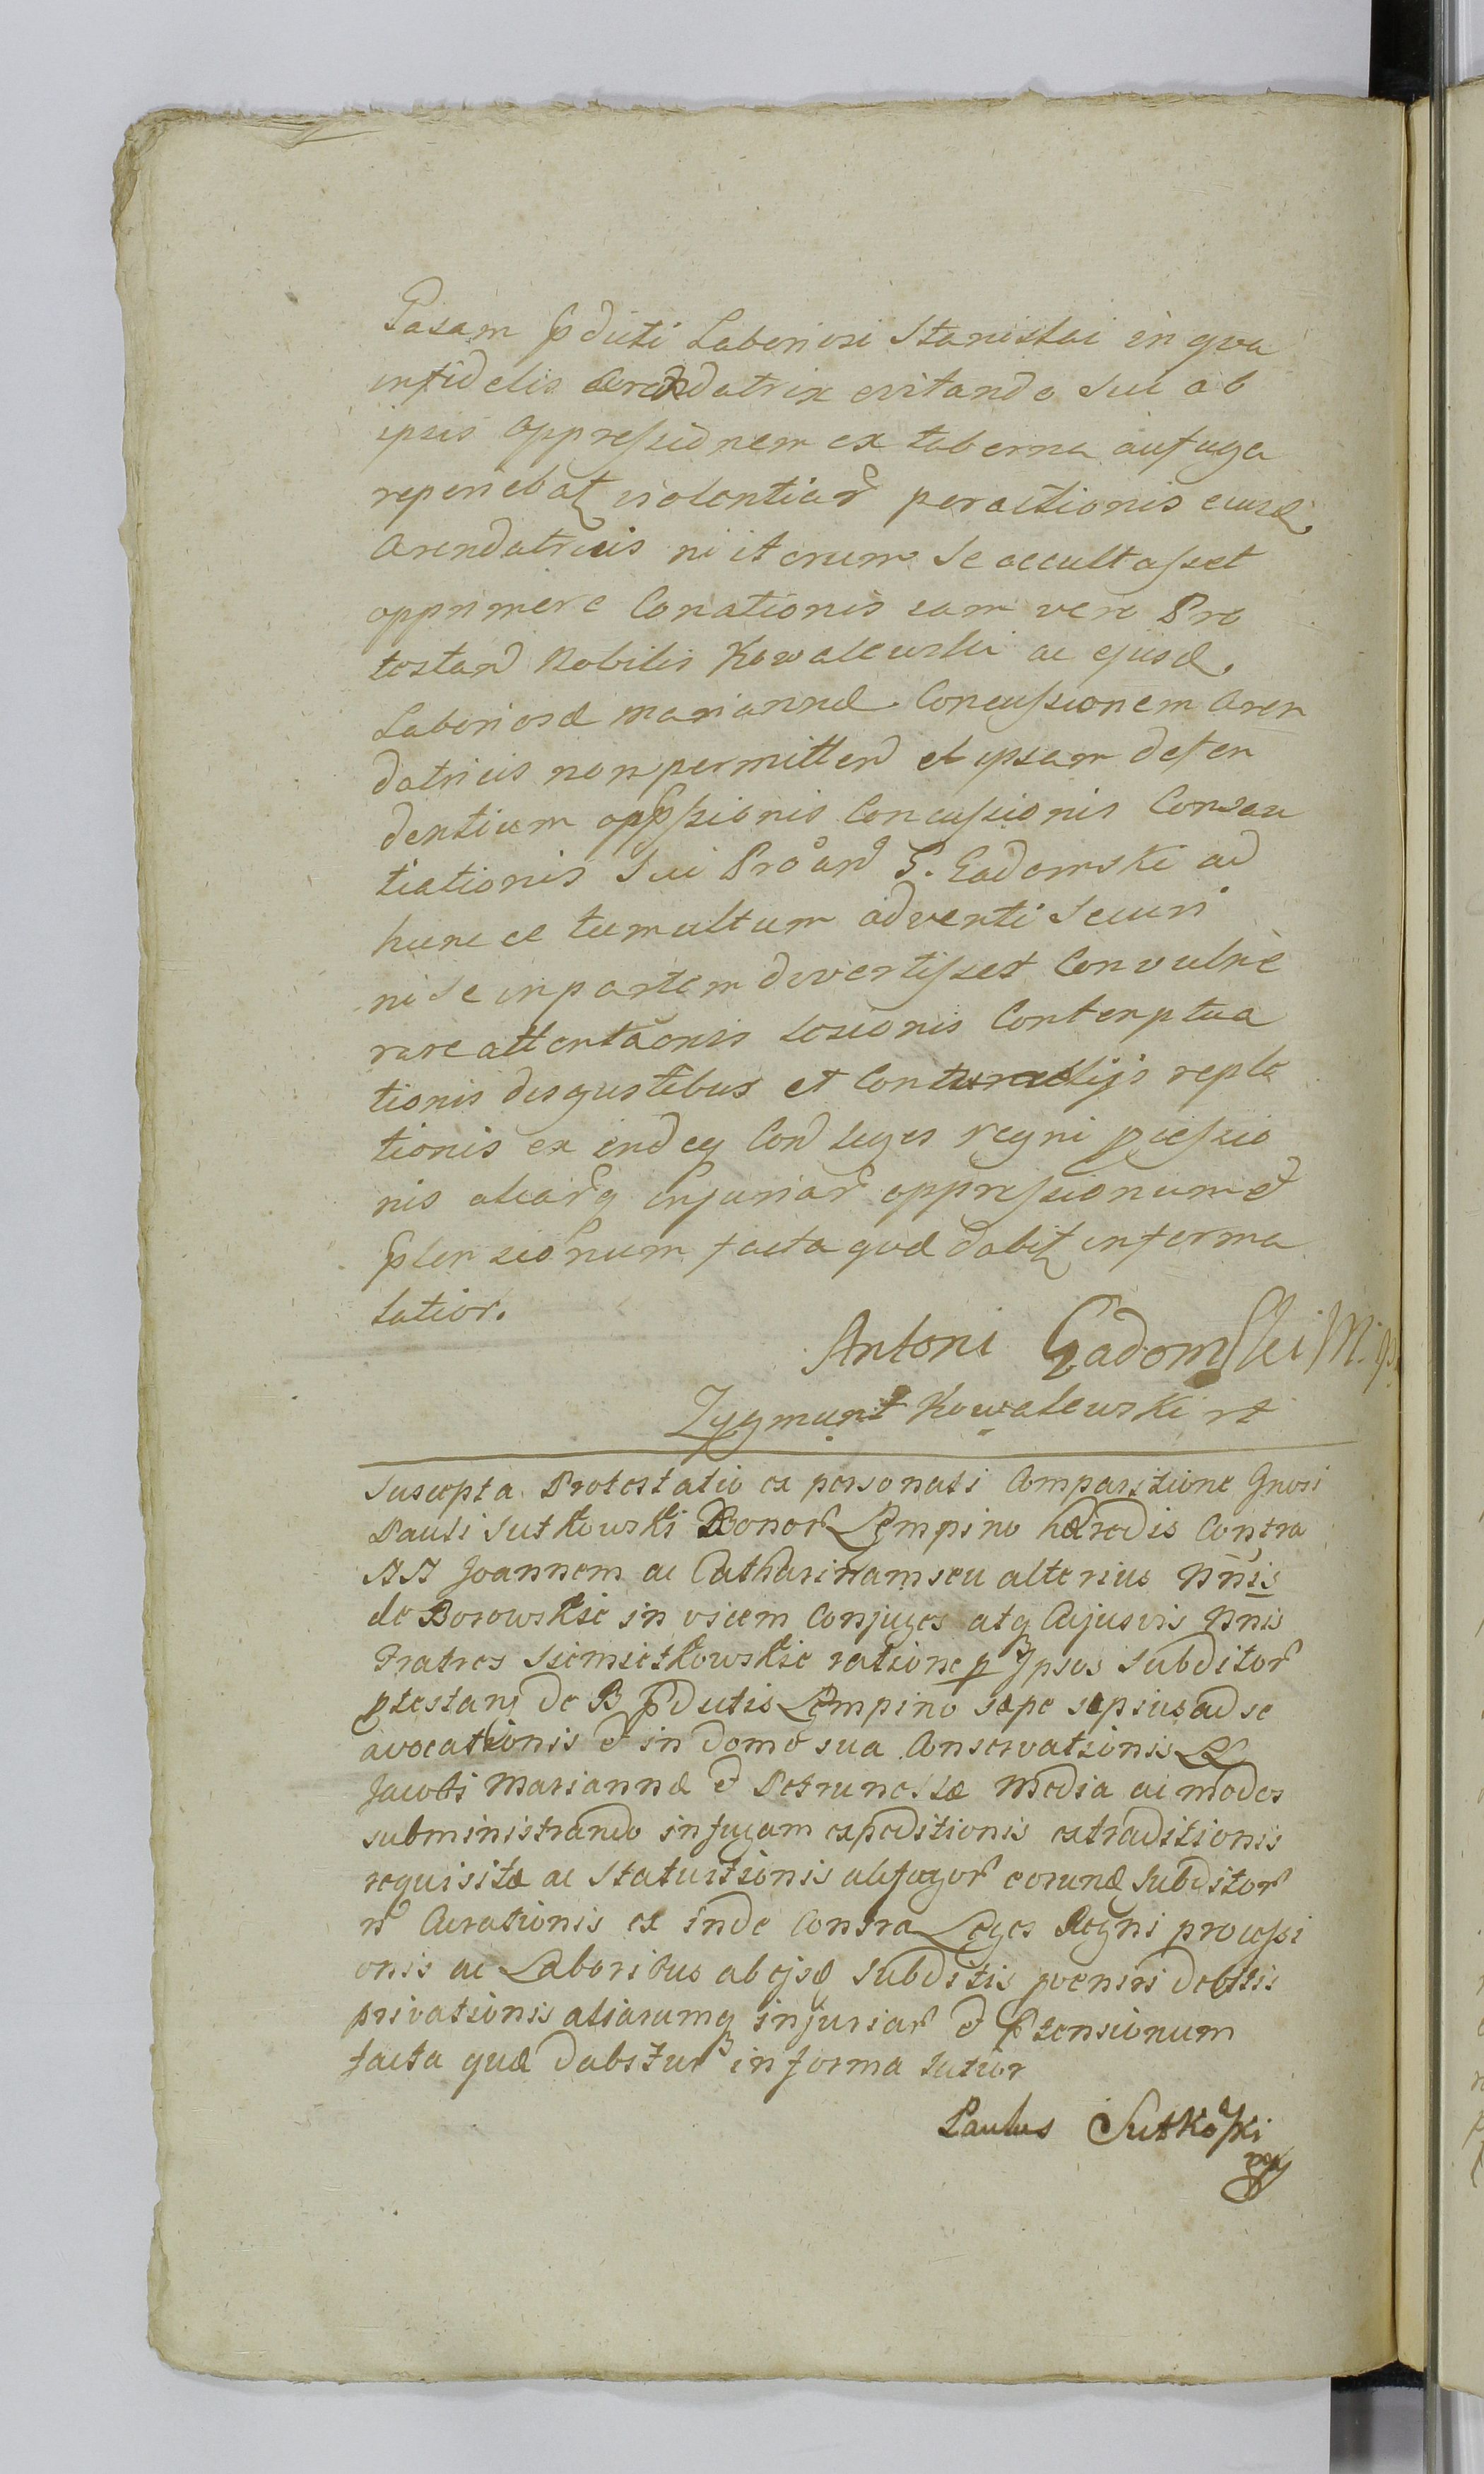 Casam pducti Laboriosi Stanislai in qva
infidelis Arendatrix evitando sui ab
ipsis oppressionem ex taberna aufuga
reperiebat violentiar peractionis eiusd
Arendatricis ni iterum se occultasset
opprimere Conationis eam vero Pro
testan Nobilis Kowalewski ac ejusd.
Laboriosæ Mariannæ Concussionem Aren
datricis non permitten et ipsam defen
dentium oppssionis Concussionis Consau
tiationis sui Proan G. Gadomski ad
hunc ce tumultum adventi securi
ni se in partem divertisset Convulne
rare attentaonis Lesionis Contemptua
tionis disgustibus et Contumelijs reple
tionis ex indeq Con Leges regni pcessio
nis aliarq injuriar oppressionum et
ptensionum facta quæ dabit in forma
latior.
Antoni Gadomski M. p.
Zygmunt Kowalewski rt
Suscepta Protestatio ex personali Comparitione Gnosi
Pauli Sutkowski Bonor Lempino hæredis Contra
NN Joannem ac Catharinam seu alterius Nnis
de Borowskie in vicem Conjuges atq Cujusvis Nnis
Fratres Siemietkowskie ratione p Ipsos Subditor
ptestans de B pductis Lempino sæpe sæpius ad se
avocationis et in domo sua Conservationis LL
Jacobi Mariannæ et Petrunellæ Media ac modos
subministrando in fugam expeditionis extraditionis
requisitæ ac Statuitionis alifugor eorund Subditor
n Curationis ex inde Contra Leges Regni processi
onis ac Laboribus ab ejsd Subditis pvenire debitis
privationis aliarumq injuriar et ptensionum
facta quæ dabitur in forma latior
Paulus Sutkoski
mp